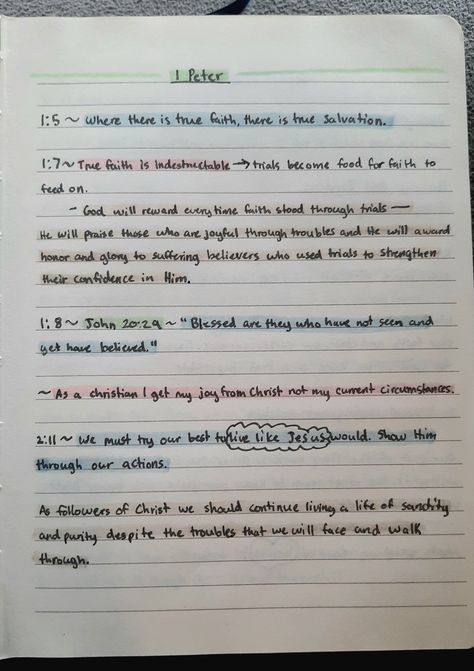 1 Peter
1:5 ~ Where there is true faith, there is true salvation.
1:7 ~ True faith is indestructable → trials become food for faith to
feed on.
- God will reward everytime faith stood through trials —
He will praise those who are joyful through troubles and He will award
honor and glory to suffering believers who used trials to strengthen
their confidence in Him.
1:8 ~ John 20:29 ~ "Blessed are they who have not seen and
yet have believed."
~ As a christian I get my joy from Christ not my current circumstances.
2:11 ~ We must try our best to live like Jesus would. Show Him
through our actions.
As followers of Christ we should continue living a life of sanctity
and purity despite the troubles that we will face and walk
through.